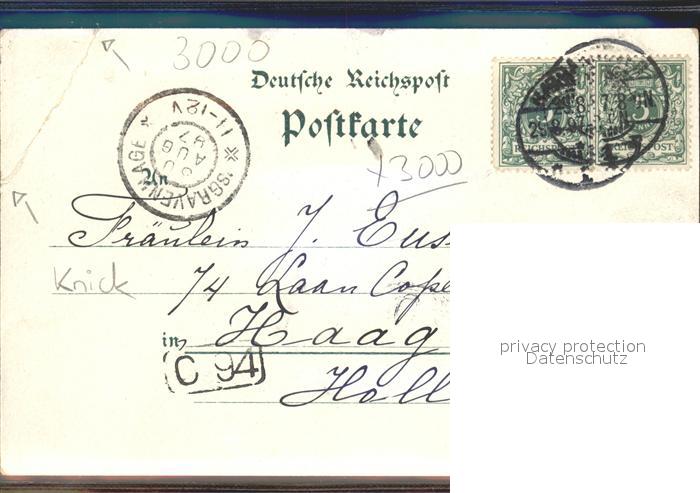 3000
Deutsche Reichspost
Postkarte
'SGRAVENHAGE
11-12V
AUG
97
+3000
An
5
5
REICHSPOST
Fräulein J. Eus
Knick
74 Laan Cope
in Haag
C 94
Holl
privacy protection
Datenschutz